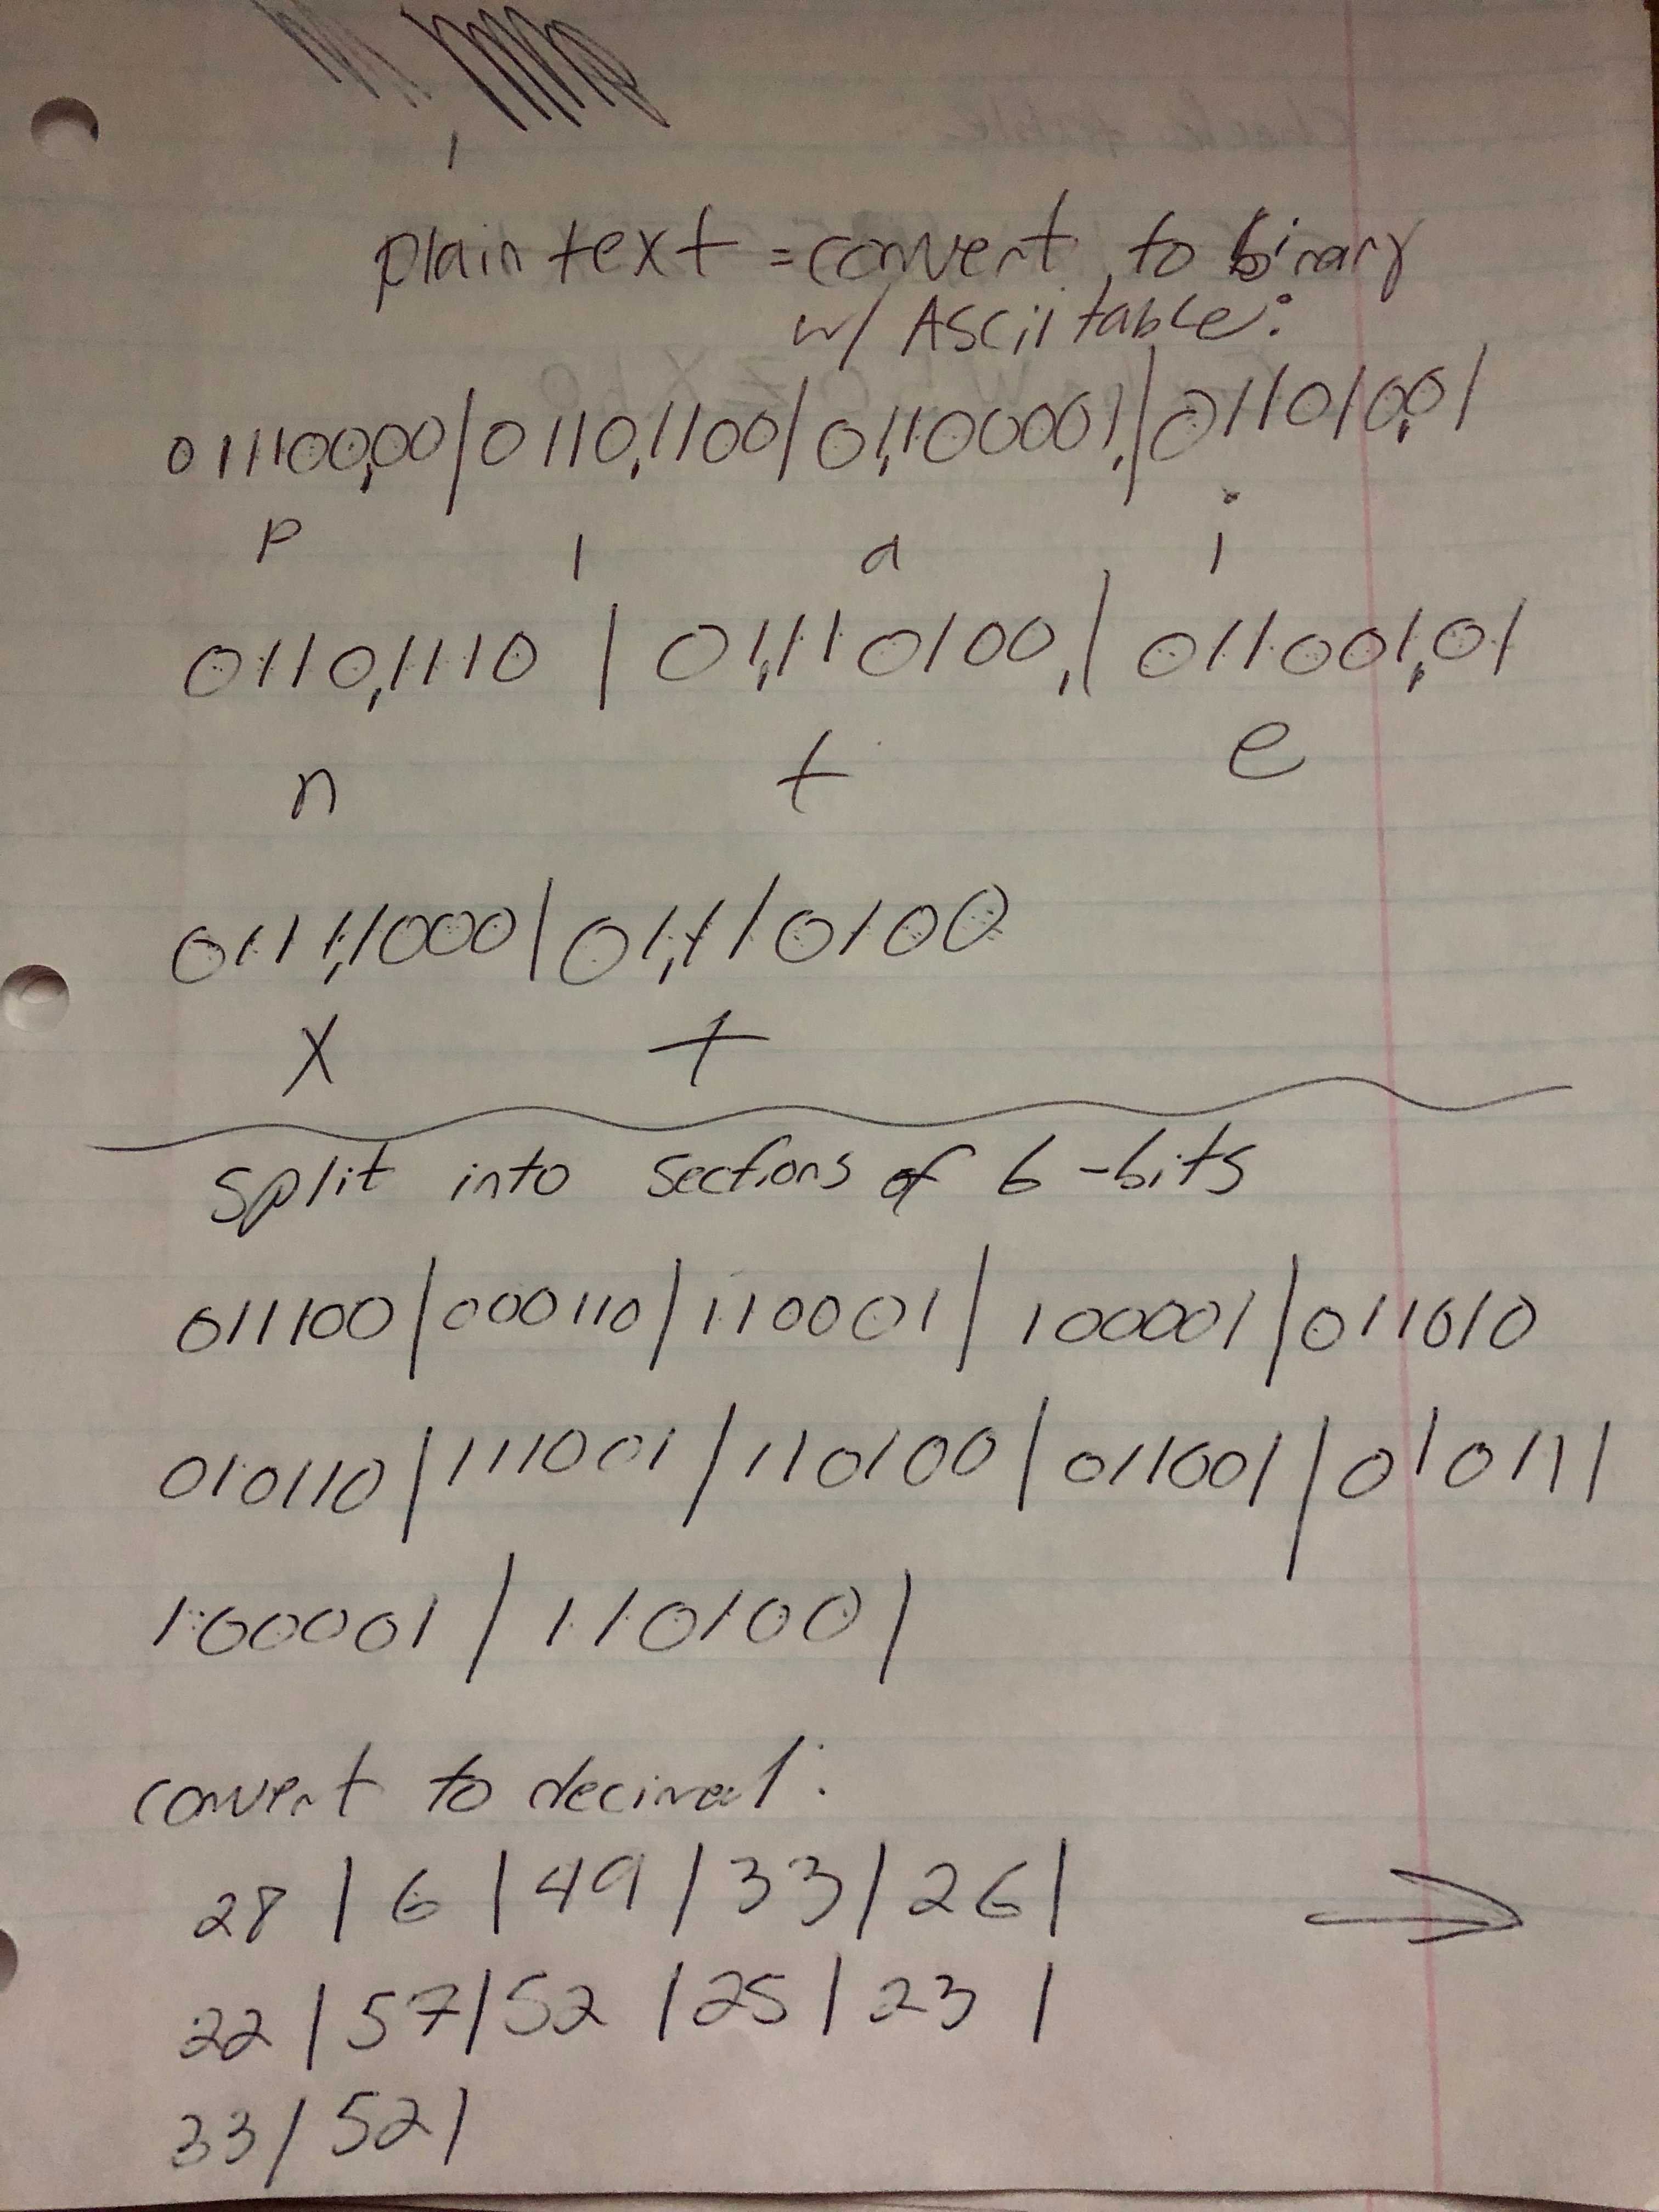 plaintext = convert to binary
w/ Ascii table:
011100,00/0110,1100/01,100001,/011010,01
p l a i
0110,1110 | 01,110100,| 011001,01
n t e
0111,1000|01,110100
x t
split into sections of 6-bits
011100/000110/110001/100001/011010
010110/111001/110100/011001/010111
100001/110100/
convert to decimal:
28 | 6 | 49 / 33 / 26 |
22 / 57 / 52 / 25 / 23 /
33 / 52 /